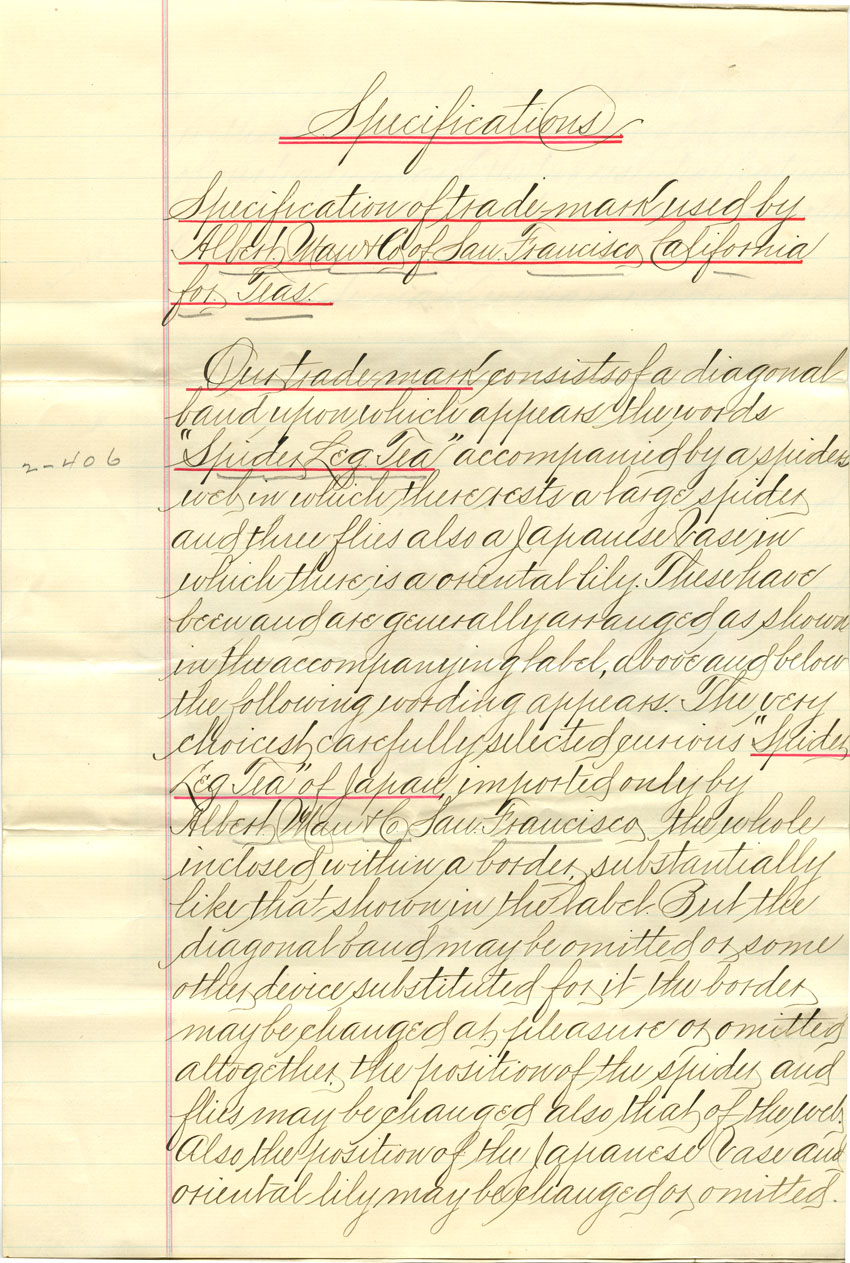 Specifications
Specification of trade-mark used by
Albert Mau & Co of San Francisco California
for Teas.
Our trade-mark consists of a diagonal
band upon which appears the words
2-406
"Spider Leg Tea" accompanied by a spiders
web in which there rests a large spider
and three flies also a Japanese Vase in
which there is a oriental lily. These have
been and are generally arranged as shown
in the accompanying label, above and below
the following wording appears. The very
choicest carefully selected curious "Spider
Leg Tea" of Japan, imported only by
Albert Mau & Co. San Francisco, the whole
inclosed within a border, substantially
like that shown in the label. But the
diagonal band may be omitted or some
other device substituted for it, the border
may be changed at pleasure or omitted
altogether, the position of the spider and
flies may be changed also that of the web.
Also the position of the Japanese Vase and
oriental lily may be changed or omitted.